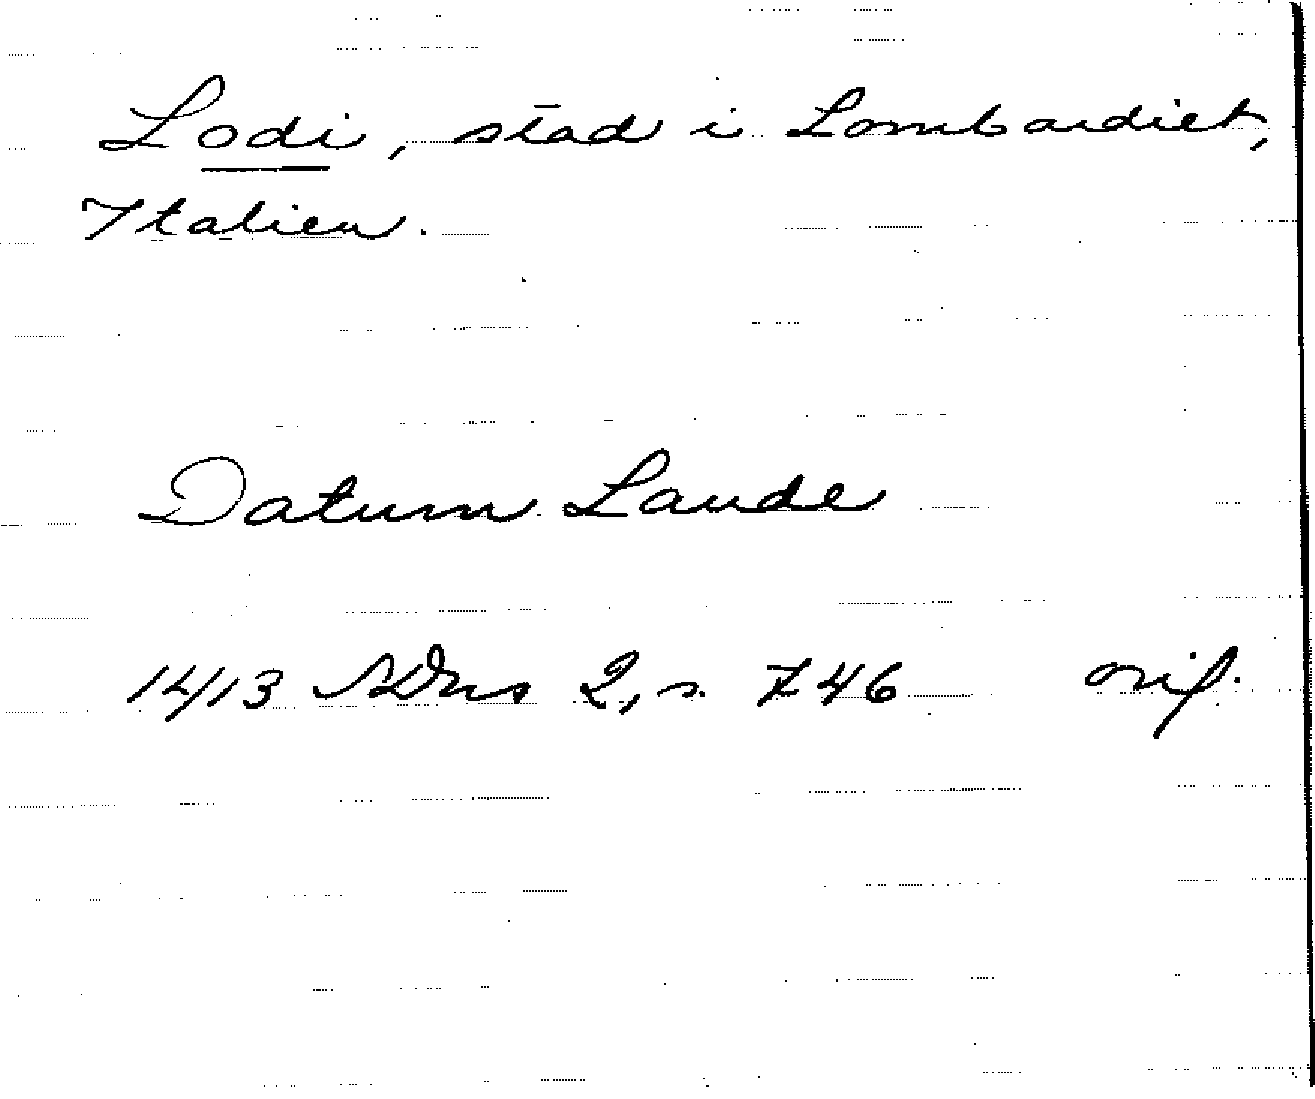 Lodi, stad i Lombardiet,
Italien.
Datum Laude
1413 SDns 2, s. 746 orig.